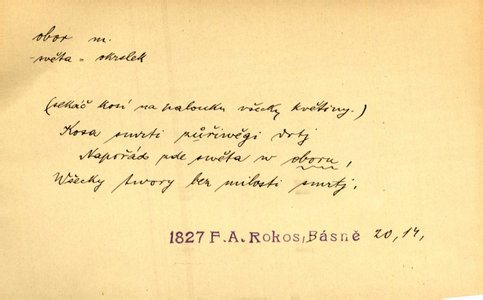 obor m.
světa = okrslek
(sekáč kosí na palouku všecky květiny.)
Kosa smrti
Napořád zde swěta w oboru,
Wšecky twory bez milosti smrtj.
1827 F. A. Rokos, Básně 20, 14,